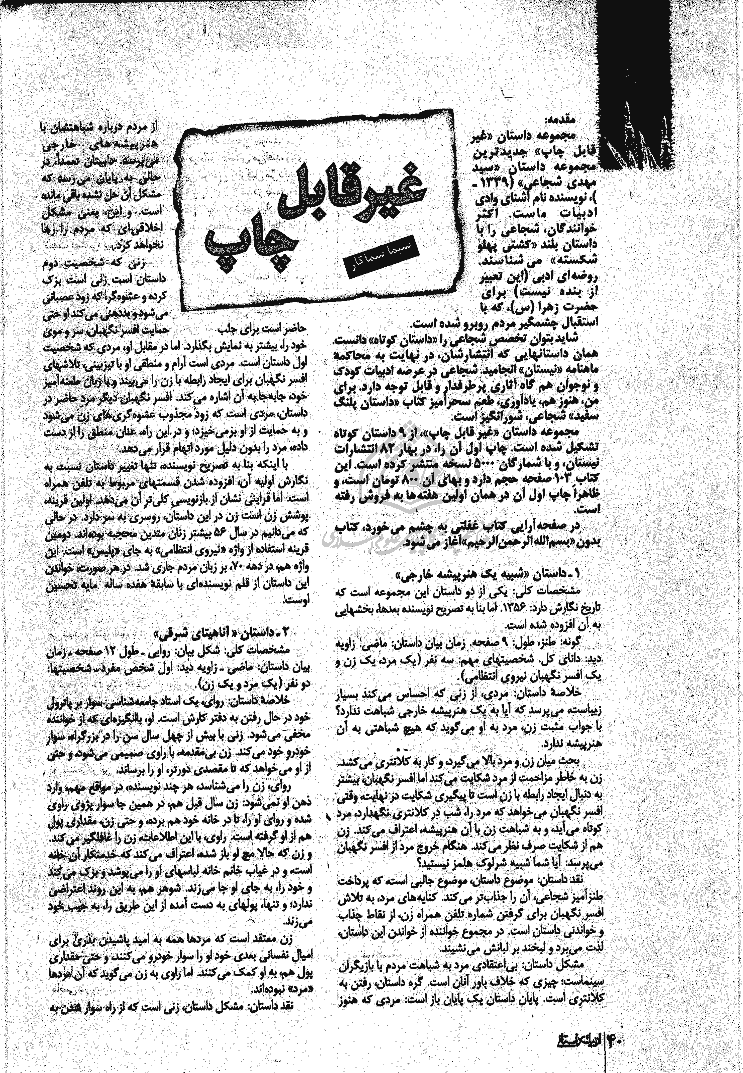 غیرقابل
چاپ
سیما سماکار
مقدمه:
مجموعه داستان «غیر
قابل چاپ» جدیدترین
مجموعه داستان «سید
مهدی شجاعی» (۱۳۳۹ ـ
)، نویسنده نام آشنای وادی
ادبیات ماست. اکثر
خوانندگان، شجاعی را با
داستان بلند «کشتی پهلو
شکسته» می شناسند.
روضه‌ای ادبی (این تعبیر
از بنده نیست) برای
حضرت زهرا (س)، که با
استقبال چشمگیر مردم روبرو شده است.
شاید بتوان تخصص شجاعی را «داستان کوتاه» دانست.
همان داستانهایی که انتشارشان، در نهایت به محاکمة
ماهنامه «نیستان» انجامید. شجاعی در عرصه ادبیات کودک
و نوجوان هم گاه آثاری پرطرفدار و قابل توجه دارد. برای
من، هنوز هم، یادآوری، طعم سحرآمیز کتاب «داستان پلنگ
سفید» شجاعی، شورانگیز است.
مجموعه داستان «غیر قابل چاپ»، از ۹ داستان کوتاه
تشکیل شده است. چاپ اول آن را، در بهار ۸۲ انتشارات
نیستان، و با شمارگان ۵۰۰۰ نسخه منتشر کرده است. این
کتاب ۱۰۳ صفحه حجم دارد و بهای آن ۸۰۰ تومان است، و
ظاهراً چاپ اول آن در همان اولین هفته‌ها به فروش رفته
است.
در صفحه آرایی کتاب غفلتی به چشم می خورد، کتاب
بدون «بسم‌الله الرحمن الرحیم» آغاز می شود.
۱ ـ داستان «شبیه یک هنرپیشه خارجی»
مشخصات کلی: یکی از دو داستان این مجموعه است که
تاریخ نگارش دارد: ۱۳۵۶. اما بنا به تصریح نویسنده بعدها، بخشهایی
به آن افزوده شده است.
گونه: طنز، طول: ۹ صفحه. زمان بیان داستان: ماضی. زاویه
دید: دانای کل. شخصیتهای مهم: سه نفر (یک مرد، یک زن و
یک افسر نگهبان نیروی انتظامی).
خلاصة داستان: مردی، از زنی که احساس می‌کند بسیار
زیباست، می‌پرسد که آیا به یک هنرپیشه خارجی شباهت ندارد؟
با جواب مثبت زن، مرد به او می‌گوید که هیچ شباهتی به آن
هنرپیشه ندارد.
بحث میان زن و مرد بالا می‌گیرد، و کار به کلانتری می‌کشد.
زن به خاطر مزاحمت از مرد شکایت می‌کند اما افسر نگهبان، بیشتر
به دنبال ایجاد رابطه با زن است تا پیگیری شکایت. در نهایت، وقتی
افسر نگهبان می‌خواهد که مرد را، شب در کلانتری نگهدارد، مرد
کوتاه می‌آید، و به شباهت زن با آن هنرپیشه، اعتراف می‌کند. زن
هم از شکایت صرف نظر می‌کند. هنگام خروج مرد از افسر نگهبان
می‌پرسد: آیا شما شبیه شرلوک هلمز نیستید؟
نقد داستان: موضوع داستان، موضوع جالبی است، که پرداخت
طنزآمیز شجاعی، آن را جذاب‌تر می‌کند. کنایه‌های مرد، به تلاش
افسر نگهبان برای گرفتن شماره تلفن همراه زن، از نقاط جذاب
و خواندنی داستان است. در مجموع خواننده از خواندن این داستان،
لذت می‌برد و لبخند بر لبانش می‌نشیند.
مشکل داستان: بی‌اعتقادی مرد به شباهت مردم با بازیگران
سینماست؛ چیزی که خلاف باور آنان است. گره داستان، رفتن به
کلانتری است. پایان داستان یک پایان باز است: مردی که هنوز
از مردم درباره شباهتشان با
هنرپیشه‌های خارجی
می‌پرسد. داستان تعمداً، در
حالی به پایان می‌رسد که
مشکل آن حل نشده باقی مانده
است. و این، یعنی مشکل
اخلاقی‌ای که مردم را رها
نخواهد کرد.
زنی که شخصیت دوم
داستان است زنی است بزک
کرده و عشوه‌گر، که زود عصبانی
می‌شود و بددهنی می‌کند. او حتی
حمایت افسر نگهبان، سر و موی
حاضر است برای جلب
خود را، بیشتر به نمایش بگذارد. اما در مقابل او، مردی که شخصیت
اول داستان است. مردی است آرام و منطقی. او با تیزبینی، تلاشهای
افسر نگهبان برای ایجاد رابطه با زن را می‌بیند و با زبان طعنه‌آمیز
خود، جابه‌جا به آن اشاره می‌کند. افسر نگهبان، دیگر مرد حاضر در
داستان، مردی است که زود مجذوب عشوه‌گری‌های زن می‌شود
و به حمایت از او برمی‌خیزد؛ و در این راه، عنان منطق را از دست
داده، مرد را بدون دلیل مورد اتهام قرار می‌دهد.
با اینکه بنا به تصریح نویسنده، تنها تغییر داستان نسبت به
نگارش اولیه آن، افزوده شدن قسمتهای مربوط به تلفن همراه
است، اما قراینی نشان از بازنویسی کلی‌تر آن می‌دهد. اولین قرینه،
پوشش زن است. زن در این داستان، روسری به سر دارد. در حالی
که می‌دانیم در سال ۵۶ بیشتر زنان متدین محجبه بوده‌اند. دومین
قرینه استفاده از واژه «نیروی انتظامی» به جای «پلیس» است. این
واژه هم، در دهه ۷۰، بر زبان مردم جاری شد. در هر صورت، خواندن
این داستان از قلم نویسنده‌ای با سابقة هفده ساله مایه تحسین
اوست.
۲ ـ داستان « آناهیتای شرقی»
مشخصات کلی: شکل بیان: روایی ـ طول ۱۲ صفحه ـ زمان
بیان داستان: ماضی ـ زاویه دید: اول شخص مفرد ـ شخصیتها:
دو نفر (یک مرد و یک زن).
خلاصة داستان: روای، یک استاد جامعه‌شناسی سوار بر پاترول
خود در حال رفتن به دفتر کارش است. او، با انگیزه‌ای که از خواننده
مخفی می‌شود. زنی با بیش از چهل سال سن را در بزرگراه، سوار
خودرو خود می‌کند. زن بی‌مقدمه، با راوی صمیمی می‌شود، و حتی
از او می‌خواهد که تا مقصدی دورتر، او را برساند.
روای، زن را می‌شناسد، هر چند نویسنده، در مواقع مهم، وارد
ذهن او نمی‌شود: زن سال قبل هم، در همین جا سوار پژوی راوی
شده و روای او را، تا در خانه خود هم برده، و حتی زن، مقداری پول
هم از او گرفته است. راوی، با این اطلاعات، زن را غافلگیر می‌کند.
و زن که حالا مچ او باز شده، اعتراف می‌کند که خدمتکار آن خانه
است، و در غیاب خانم خانه لباسهای او را می‌پوشد و بزک می‌کند
و خود را، به جای او جا می‌زند. شوهر هم، به این روند اعتراضی
ندارد؛ و تنها، پولهای به دست آمده از این طریق را، به جیب خود
می‌زند.
زن معتقد است که مردها همه به امید پاشیدن بذری برای
امیال نفسانی بعدی خود او را سوار خودرو می‌کنند، و حتی مقداری
پول هم، به او کمک می‌کنند. اما راوی به زن می‌گوید که آن مردها
«مرد» نبوده‌اند.
نقد داستان: مشکل داستان، زنی است که از راه سوار شدن به
۴۰ ادبیات داستانی